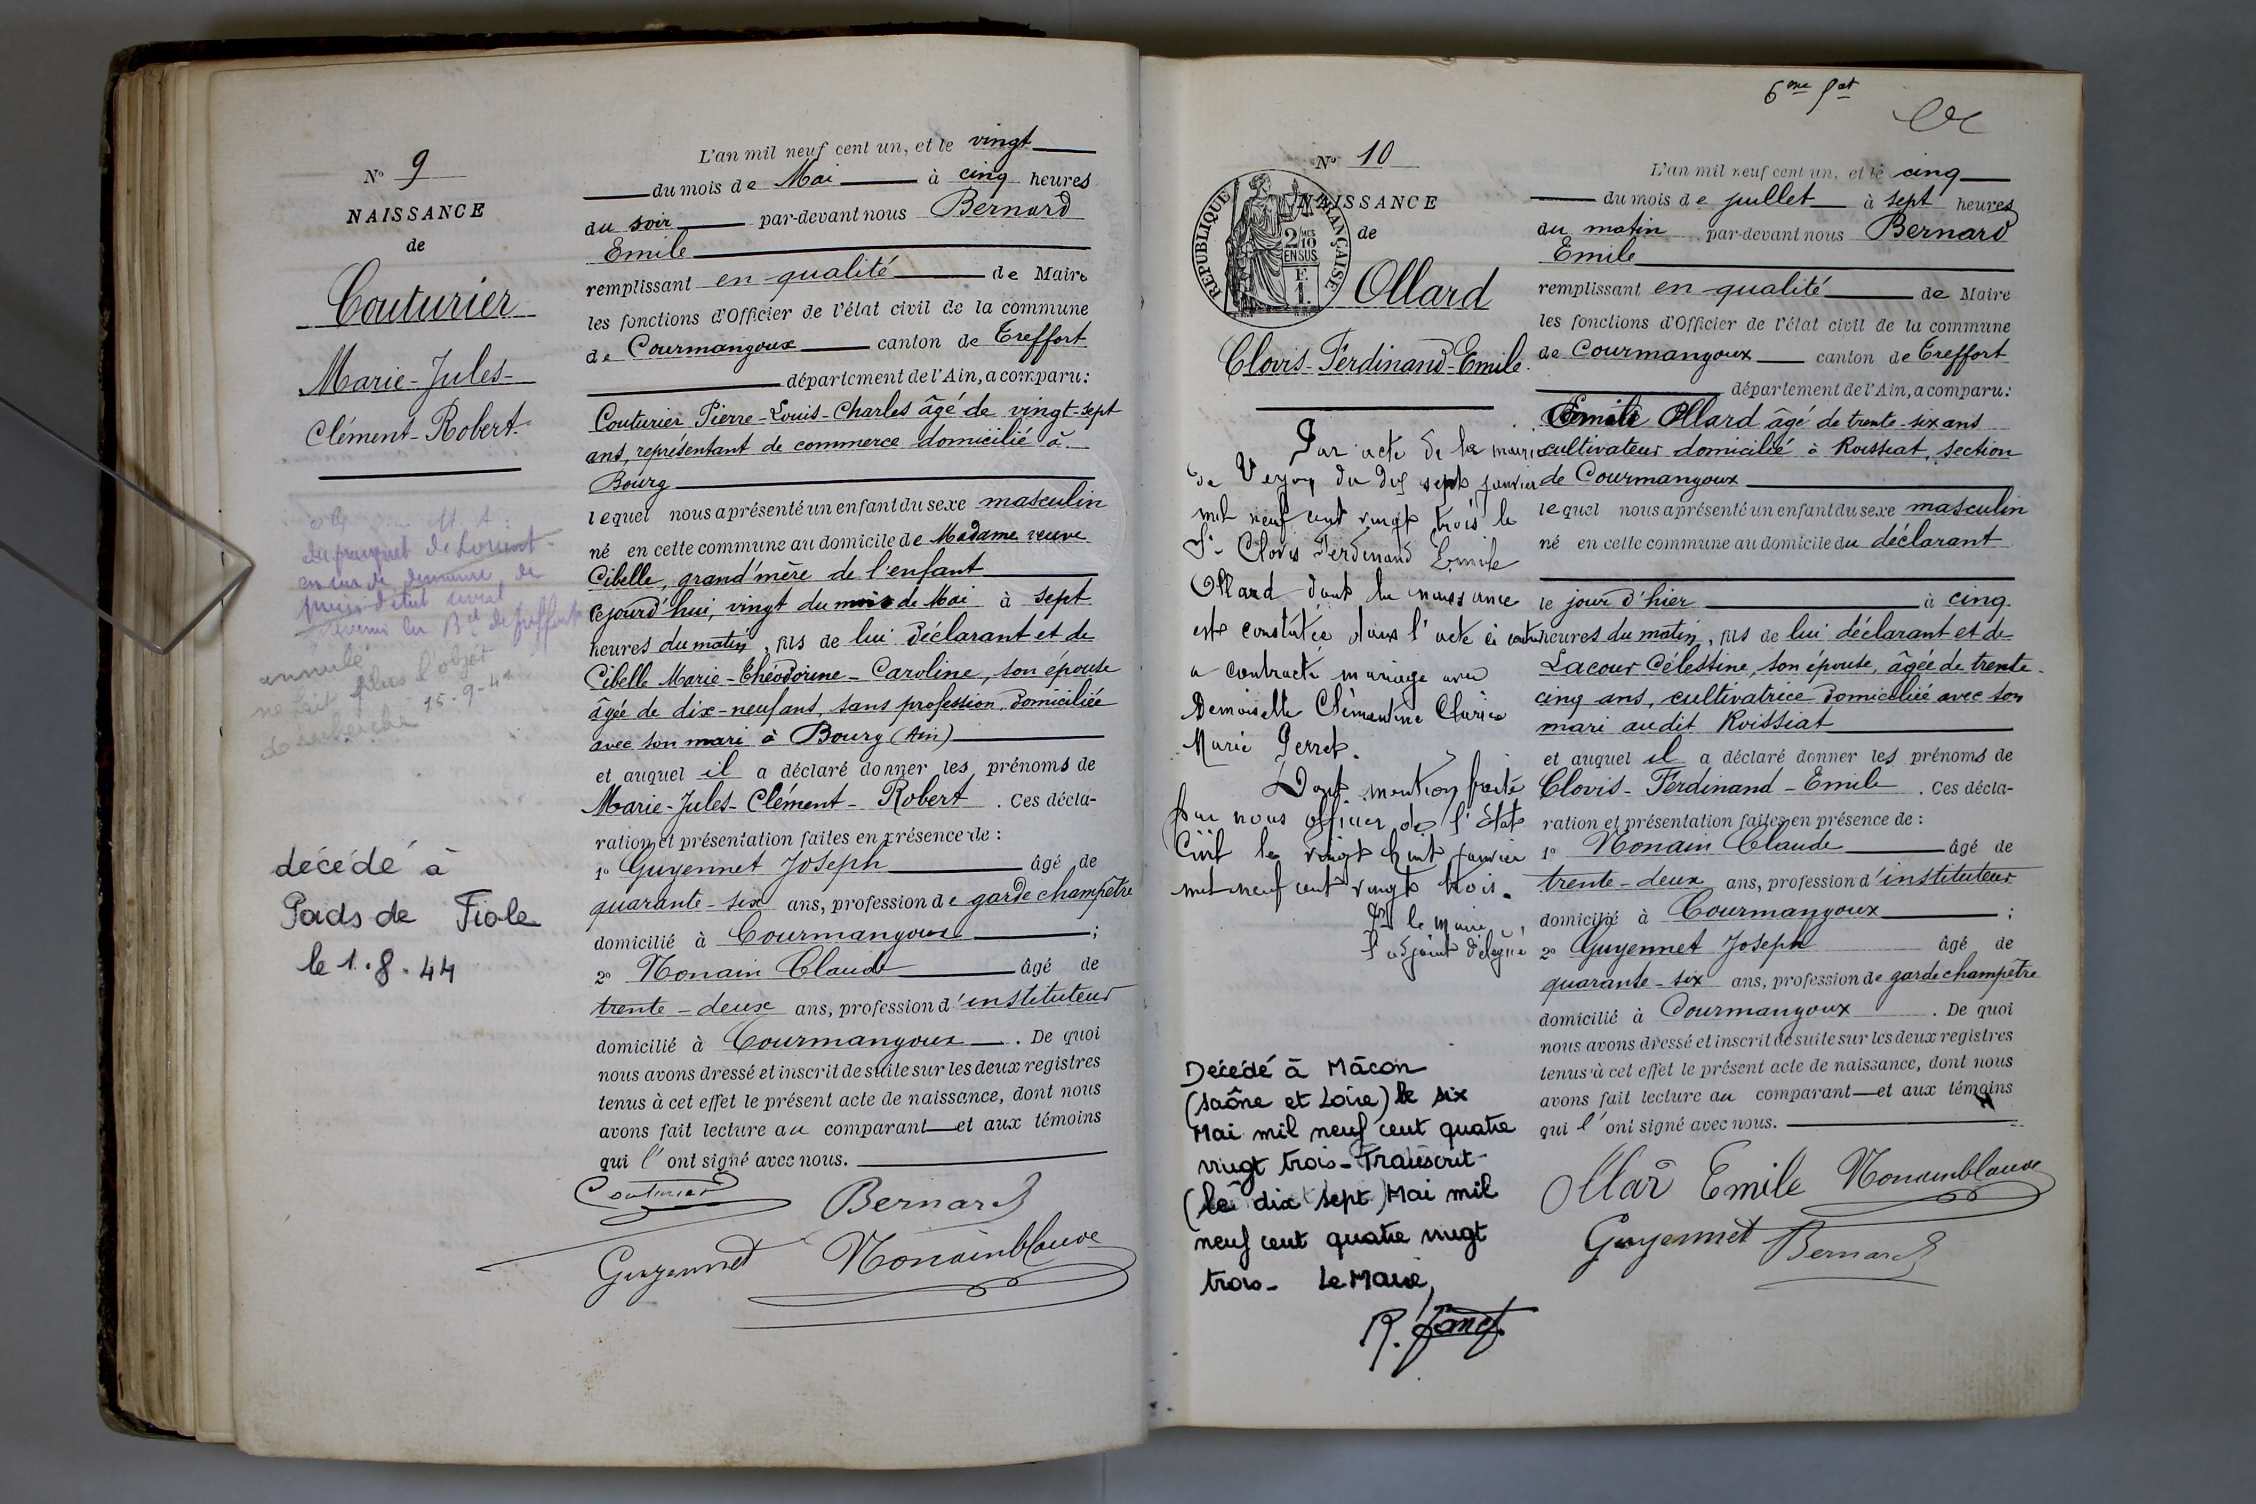 N° 9
NAISSANCE
de
Couturier
Marie-Jules-
Clément-Robert.
du parquet de
de
annulé
ne fait plus l'objet
15-9-4
décédé à
Pads de Fiole
le 1.8.44
L'an mil neuf cent un, et le vingt
du mois de Mai à cinq heures
du soir par-devant nous Bernard
Emile
remplissant en qualité de Maire
les fonctions d'Officier de l'état civil de la commune
de Courmangoux canton de Treffort
département de l'Ain, a comparu:
Couturier Pierre-Louis-Charles âgé de vingt-sept
ans, représentant de commerce domicilié à
Bourg
lequel nous a présenté un enfant du sexe masculin
né en cette commune au domicile de Madame veuve
Cibelle, grand'mère de l'enfant
cejourd'hui, vingt du mois de Mai à sept
heures du matin, fils de lui déclarant et de
Cibelle Marie-Théodorine-Caroline, son épouse
âgée de dix-neuf ans, sans profession, domiciliée
avec son mari à Bourg (Ain)
et auquel il a déclaré donner les prénoms de
Marie-Jules-Clément-Robert. Ces décla-
ration et présentation faites en présence de:
1° Guyennet Joseph âgé de
quarante-six ans, profession de garde champêtre
domicilié à Courmangoux;
2° Nonain Claude âgé de
trente-deux ans, profession d'instituteur
domicilié à Courmangoux. De quoi
nous avons dressé et inscrit de suite sur les deux registres
tenus à cet effet le présent acte de naissance, dont nous
avons fait lecture au comparant et aux témoins
qui l'ont signé avec nous.
Couturier Bernard
Guyennet Nonainblaude
6me fet
N° 10
NAISSANCE
de
REPUBLIQUE FRANÇAISE
2 MES 10
EN SUS
F.
1.
Ollard
Clovis-Ferdinand-Emile.
Par acte de la mairie
de Verjon du dix sept janvier
mil neuf cent vingt trois le
Sr Clovis Ferdinand Emile
Ollard dont la naissance
est constatée dans l'acte ci contre
a contracté mariage avec
Demoiselle Clémentine Clarisse
Marie Perret.
Dont mention faite
par nous officier de l'Etat
Civil le vingt huit janvier
mil neuf cent vingt trois.
Pr le maire,
l'adjoint délégué
Décédé à Mâcon
(Saône et Loire) le six
Mai mil neuf cent quatre
vingt trois - Transcrit -
(le dix sept) Mai mil
neuf cent quatre vingt
trois - Le Maire,
L'an mil neuf cent un, et le cinq
du mois de juillet à sept heures
du matin par-devant nous Bernard
Emile
remplissant en qualité de Maire
les fonctions d'Officier de l'état civil de la commune
de Courmangoux canton de Treffort
département de l'Ain, a comparu:
Emile Ollard âgé de trente-six ans
cultivateur domicilié à Roissiat, section
de Courmangoux
lequel nous a présenté un enfant du sexe masculin
né en cette commune au domicile du déclarant
le jour d'hier à cinq
heures du matin, fils de lui déclarant et de
Lacour Célestine, son épouse, âgée de trente-
cinq ans, cultivatrice domiciliée avec son
mari audit Roissiat
et auquel il a déclaré donner les prénoms de
Clovis-Ferdinand-Emile. Ces décla-
ration et présentation faites en présence de:
1° Nonain Claude âgé de
trente-deux ans, profession d'instituteur
domicilié à Courmangoux;
2° Guyennet Joseph âgé de
quarante-six ans, profession de garde champêtre
domicilié à Courmangoux. De quoi
nous avons dressé et inscrit de suite sur les deux registres
tenus à cet effet le présent acte de naissance, dont nous
avons fait lecture au comparant et aux témoins
qui l'ont signé avec nous.
Ollard Emile Nonainblaude
Guyennet Bernard